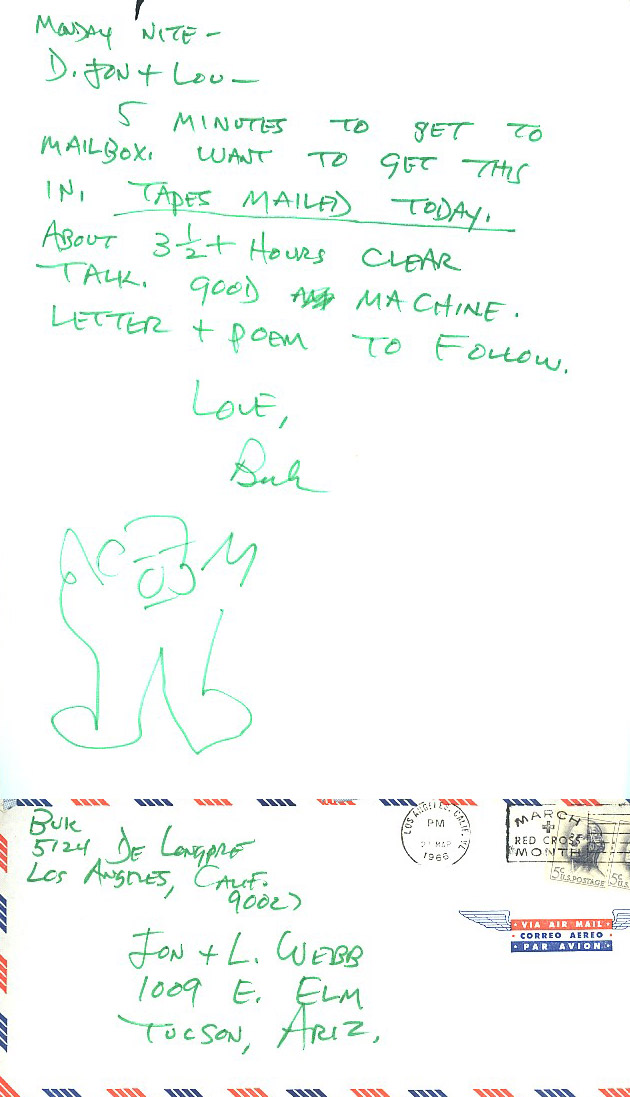 MONDAY NITE -
D. JON + LOU -
5 MINUTES TO GET TO
MAILBOX. WANT TO GET THIS
IN. TAPES MAILED TODAY.
ABOUT 3 1/2 + HOURS CLEAR
TALK. GOOD MACHINE.
LETTER + POEM TO FOLLOW.
LOVE,
Buk
BUK
5124 DE LONGPRE
LOS ANGELES, CALIF.
90027
LOS ANGELES, CALIF.
PM
MAR
1966
MARCH
RED CROSS
MONTH
5¢
U.S. POSTAGE
5¢
U.S.
VIA AIR MAIL
CORREO AEREO
PAR AVION
JON + L. WEBB
1009 E. ELM
TUCSON, ARIZ.